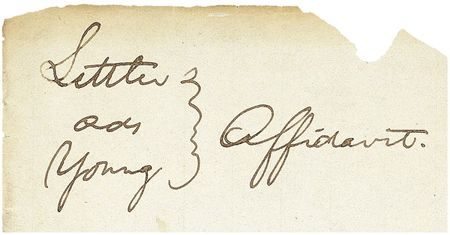 Settler
ads
Young
Affidavit.